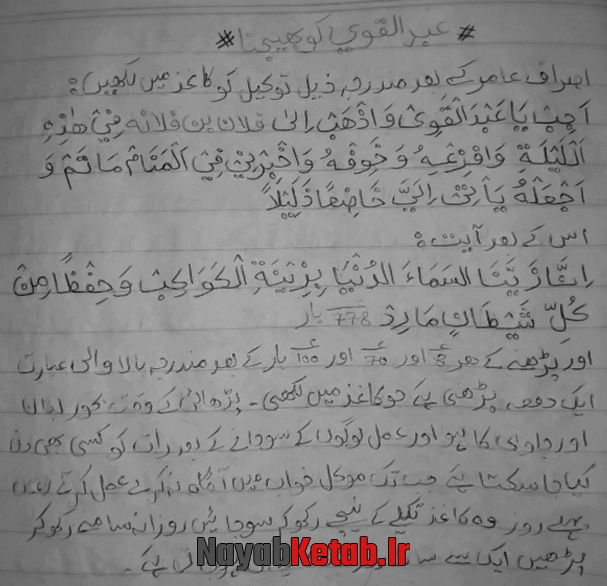 # عبد القوي کو بھیجنا #
اصراف عامر کے بعد مندرجہ ذیل توکیل کو کاغذ میں لکھیں:
اَجِبْ یَا عَبْدَ الْقَوِیْ وَ اذْهَبْ اِلیٰ فلان بن فلانه فِیْ هٰذِهِ
اللَّیْلَةِ وَ افْزِعْهُ وَ خَوِّفْهُ وَ اخْبِرْنِیْ فِی الْمَنَامْ مَا تَمْ وَ
اَجْعَلْهُ یَأْتِیْ اِلَیَّ خَاضِعًا ذَلِیْلًا
اس کے بعد آیت:
اِنَّا زَیَّنَّا السَمَاءَ الدُنْیَا بِزِیْنَةِ الْکَوَاکِبْ وَ حِفْظًا مِنْ
کُلِّ شَیْطَانٍ مَارِدْ 778 بار
اور پڑھنے کے ھر اور 70 اور 100 بار کے بعد مندرجہ بالا والی عبارت
ایک دفعہ پڑھنی ہے جو کاغذ میں لکھی۔ پڑھائی کے وقت بخور لبان
اور جاوی کا ہو اور عمل لوگوں کے سو جانے کے بعد رات کو کسی بھی دن
کیا جا سکتا ہے جب تک موکل خواب میں آگاہ نہ کرے عمل کرتے رہیں
پہلے روز وہ کاغذ تکیے کے نیچے رکھ کر سو جائیں روزانہ سامنے رکھ کر
پڑھیں ایک سے ہے۔
NayabKetab.Ir